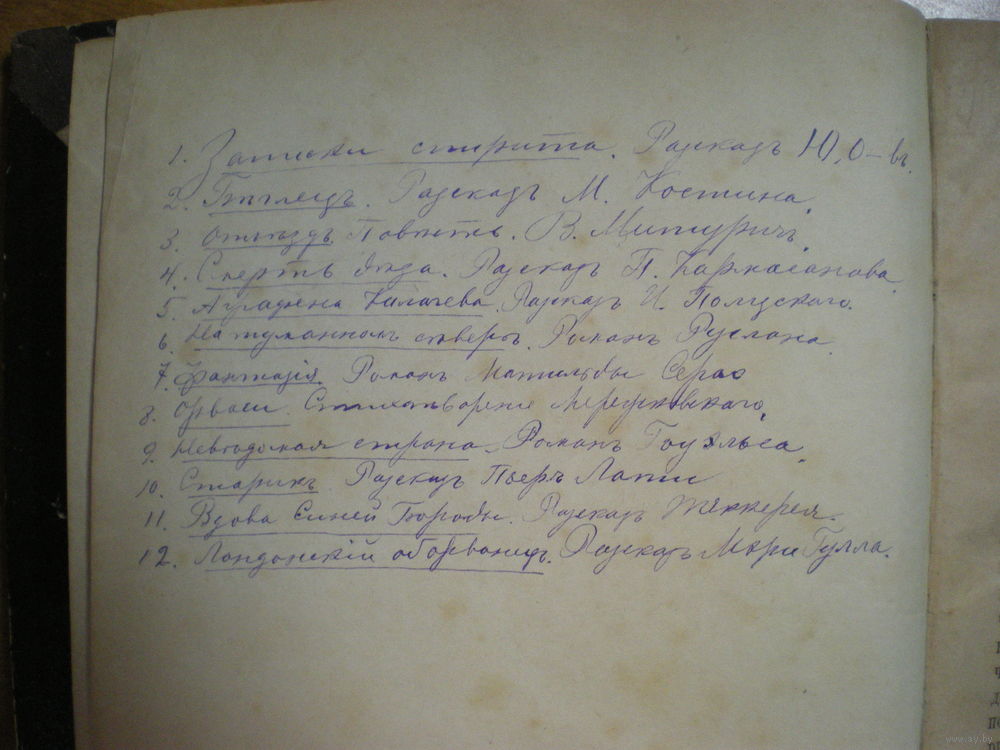 1. Записки спирита. Разсказъ Ю. О—въ.
2. Бѣглецъ. Разсказъ М. Костина.
3. Отъѣздъ. Повѣсть. В. Мичуричъ.
4. Смерть дѣда. Разсказъ П. Кармасанова.
5. Аграфена Калачева. Разсказъ И. Полуского.
6. На туманномъ сѣверѣ. Романъ Руслана.
7. Фантазія. Романъ Матильды Серао
8. Орваси. Стихотвореніе Мережковскаго,
9. Невѣдомая страна. Романъ Гоуэльса.
10. Старикъ. Разсказъ Пьеръ Лоти
11. Вдова Синей Бороды. Разсказъ Жеккерея.
12. Лондонскій оборванецъ. Разсказъ Мери Гулла.
www.ay.by